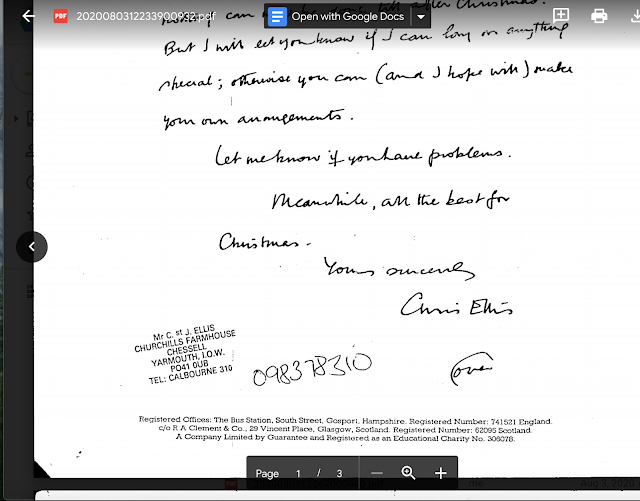 20200803122339009​32.pdf
Open with Google Docs
can after Christmas.
But I will let you know if I can lay on anything
special; otherwise you can (and I hope will) make
your own arrangements.
Let me know if you have problems.
Meanwhile, all the best for
Christmas.
Yours sincerely
Chris Ellis
Mr C. st J. ELLIS
CHURCHILLS FARMHOUSE
CHESSELL
YARMOUTH, I.O.W.
PO41 0UB
TEL: CALBOURNE 310
098378310
over
Registered Offices: The Bus Station, South Street, Gosport, Hampshire. Registered Number: 741521 England.
c/o R A Clement & Co., 29 Vincent Place, Glasgow, Scotland. Registered Number: 62095 Scotland.
A Company Limited by Guarantee and Registered as an Educational Charity No. 306078.
Page 1 / 3
Aug 3, 2020